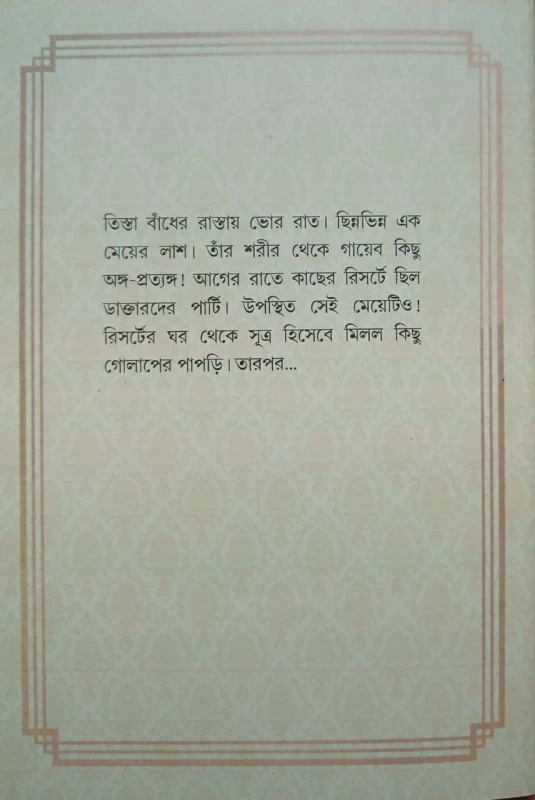 তিস্তা বাঁধের রাস্তায় ভোর রাত। ছিন্নভিন্ন এক
মেয়ের লাশ। তাঁর শরীর থেকে গায়েব কিছু
অঙ্গ-প্রত্যঙ্গ! আগের রাতে কাছের রিসর্টে ছিল
ডাক্তারদের পার্টি। উপস্থিত সেই মেয়েটিও!
রিসর্টের ঘর থেকে সূত্র হিসেবে মিলল কিছু
গোলাপের পাপড়ি। তারপর...